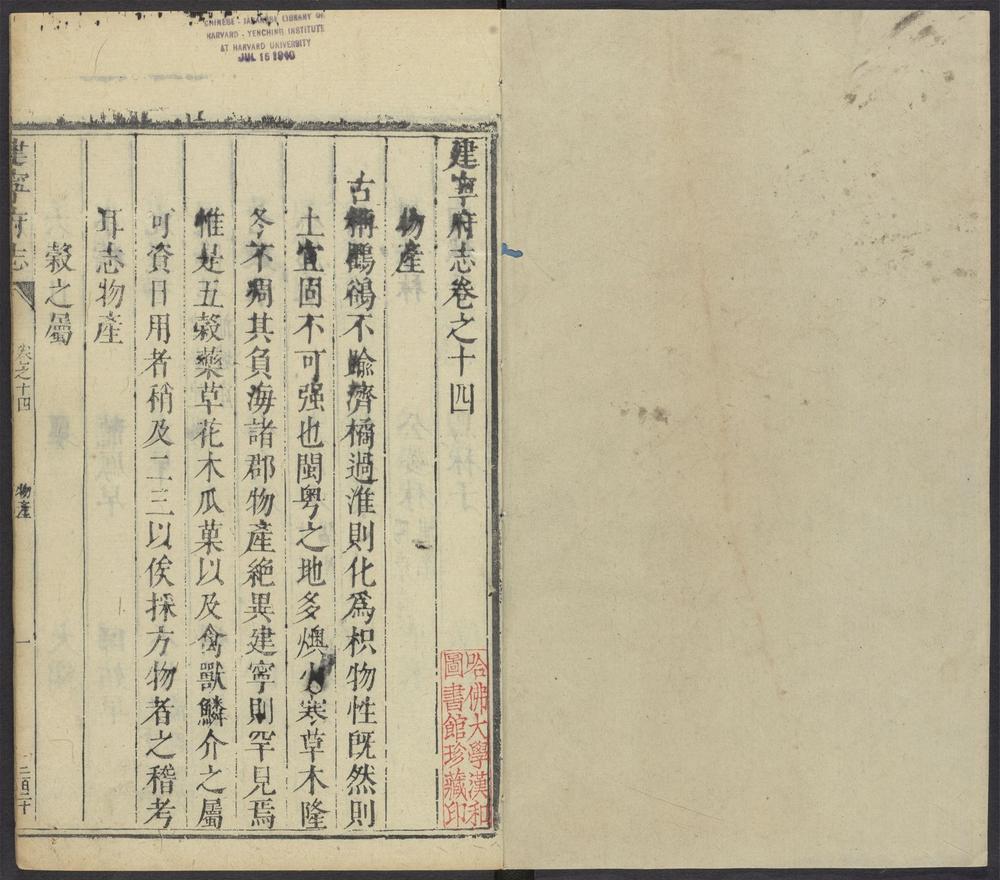 CHINESE - JAPANESE LIBRARY OF
HARVARD - YENCHING INSTITUTE
AT HARVARD UNIVERSITY
JUL 15 1940
建寧府志卷之十四
物産
古稱鸜鵒不踰濟橘過淮則化爲枳物性旣然則
土宜固不可强也閩粤之地多燠少寒草木隆
冬不凋其負海諸郡物產絶異建寧則罕見焉
惟是五榖藥草花木瓜菓以及禽獸鱗介之屬
可資日用者稍及二三以俟採方物者之稽考
耳志物產
榖之屬
建寧府志
卷之十四
物產
一
三百二十
哈佛大學漢和
圖書館珍藏印